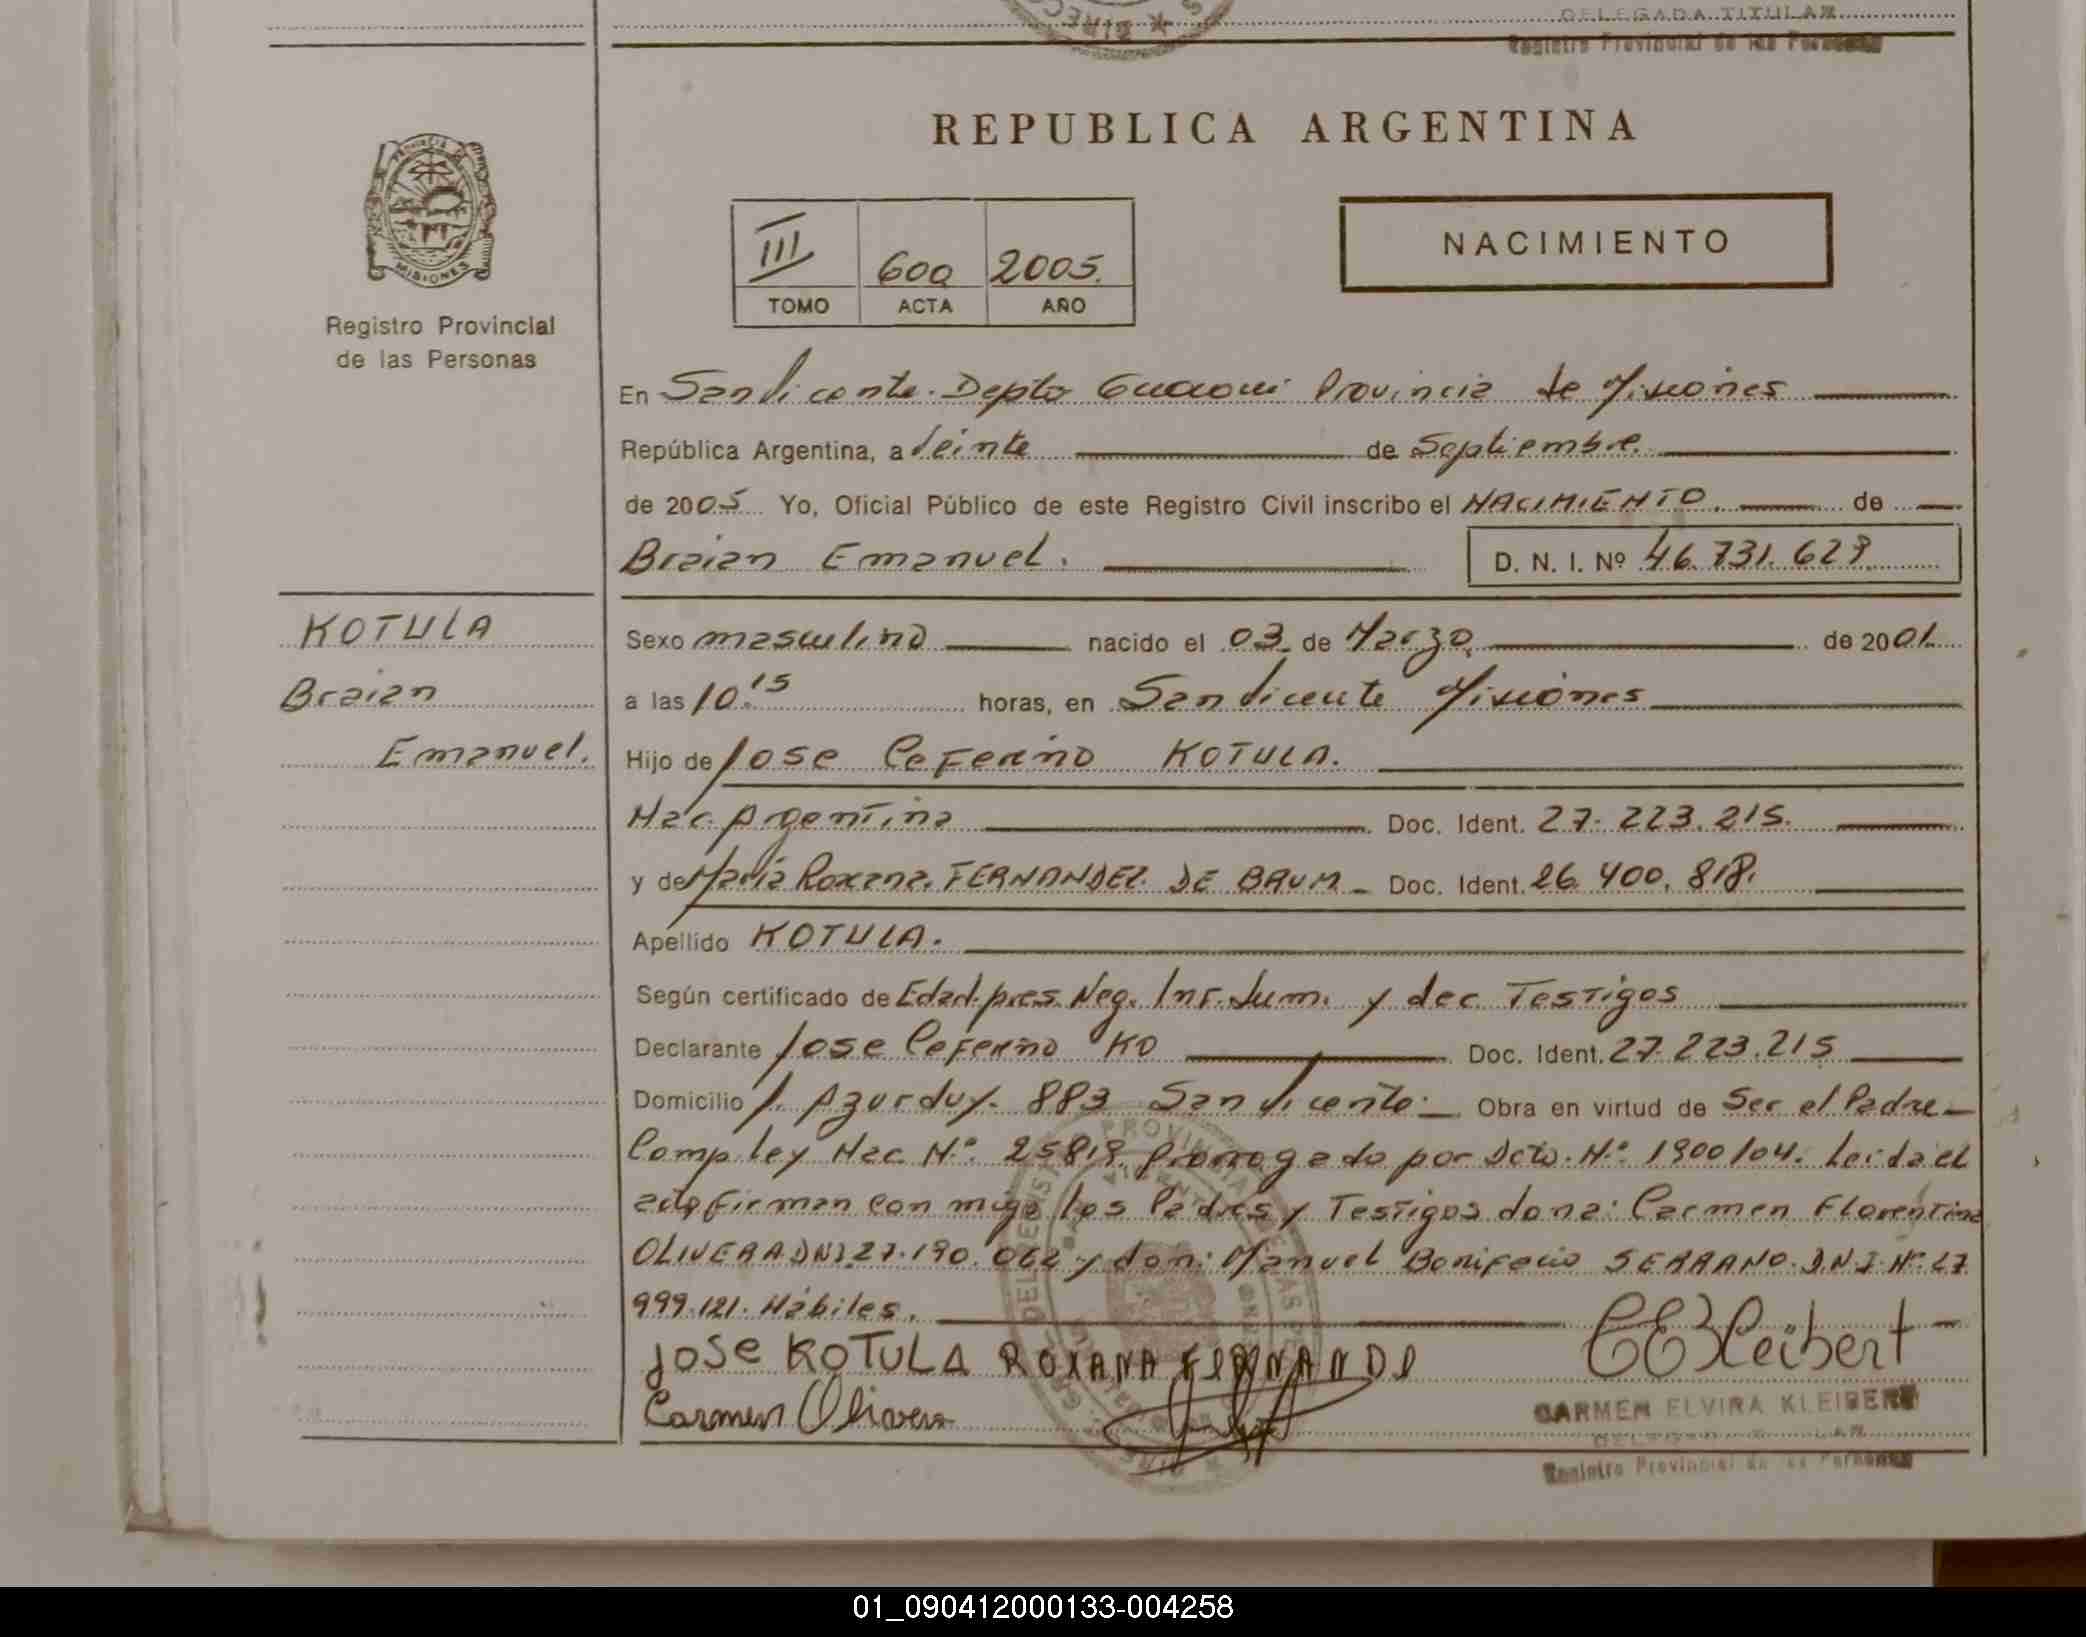 DELEGADA TITULAR
Registro Provincial de las Personas
REPUBLICA ARGENTINA
PROVINCIA DE
MISIONES
Registro Provincial
de las Personas
III 600 2005.
TOMO ACTA AÑO
NACIMIENTO
En San Vicente. Depto Guarani Provincia de Misiones
República Argentina, a Veinte de Septiembre.
de 2005 Yo, Oficial Público de este Registro Civil inscribo el NACIMIENTO. de
Braian Emanuel. D. N. I. Nº 46.731.627
KOTULA
Braian
Emanuel.
Sexo masculino nacido el 03. de Marzo. de 2001.
a las 10.15 horas, en San Vicente Misiones
Hijo de Jose Ceferino KOTULA.
Nac. Argentina Doc. Ident. 27. 223. 215.
y de Maria Roxana. FERNANDEZ. DE BAUM Doc. Ident. 26. 400. 818.
Apellido KOTULA.
Según certificado de Edad. pres. Neg. Inf. Sum. y dec Testigos
Declarante Jose Ceferino KO Doc. Ident. 27. 223. 215
Domicilio J. Azurduy. 883 San Vicente. Obra en virtud de Ser el Padre
Comp. ley Nac. N.º 25818. Prorrogado por Dcto. N.º 1900/04. Leida el
acta firman con migo los Padres y Testigos dona: Carmen Florentina
OLIVERA DNI 27.190.062 y don: Manuel Bonifacio SERRANO. D.N.I. Nº 27
999.121. Hábiles.
JOSE KOTULA ROXANA FERNANDE
Carmen Olivera
CEKleibert
CARMEN ELVIRA KLEIBERT
Registro Provincial de las Personas
01_090412000133-004258